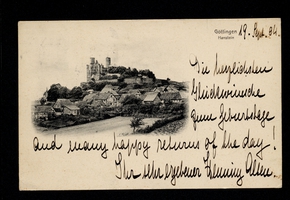 Göttingen
Hanstein
19. Sept. 04.
Die herzlichsten
Glückwünsche
zum Geburtstage
and many happy returns of the day!
Ihr sehr ergebener Henning